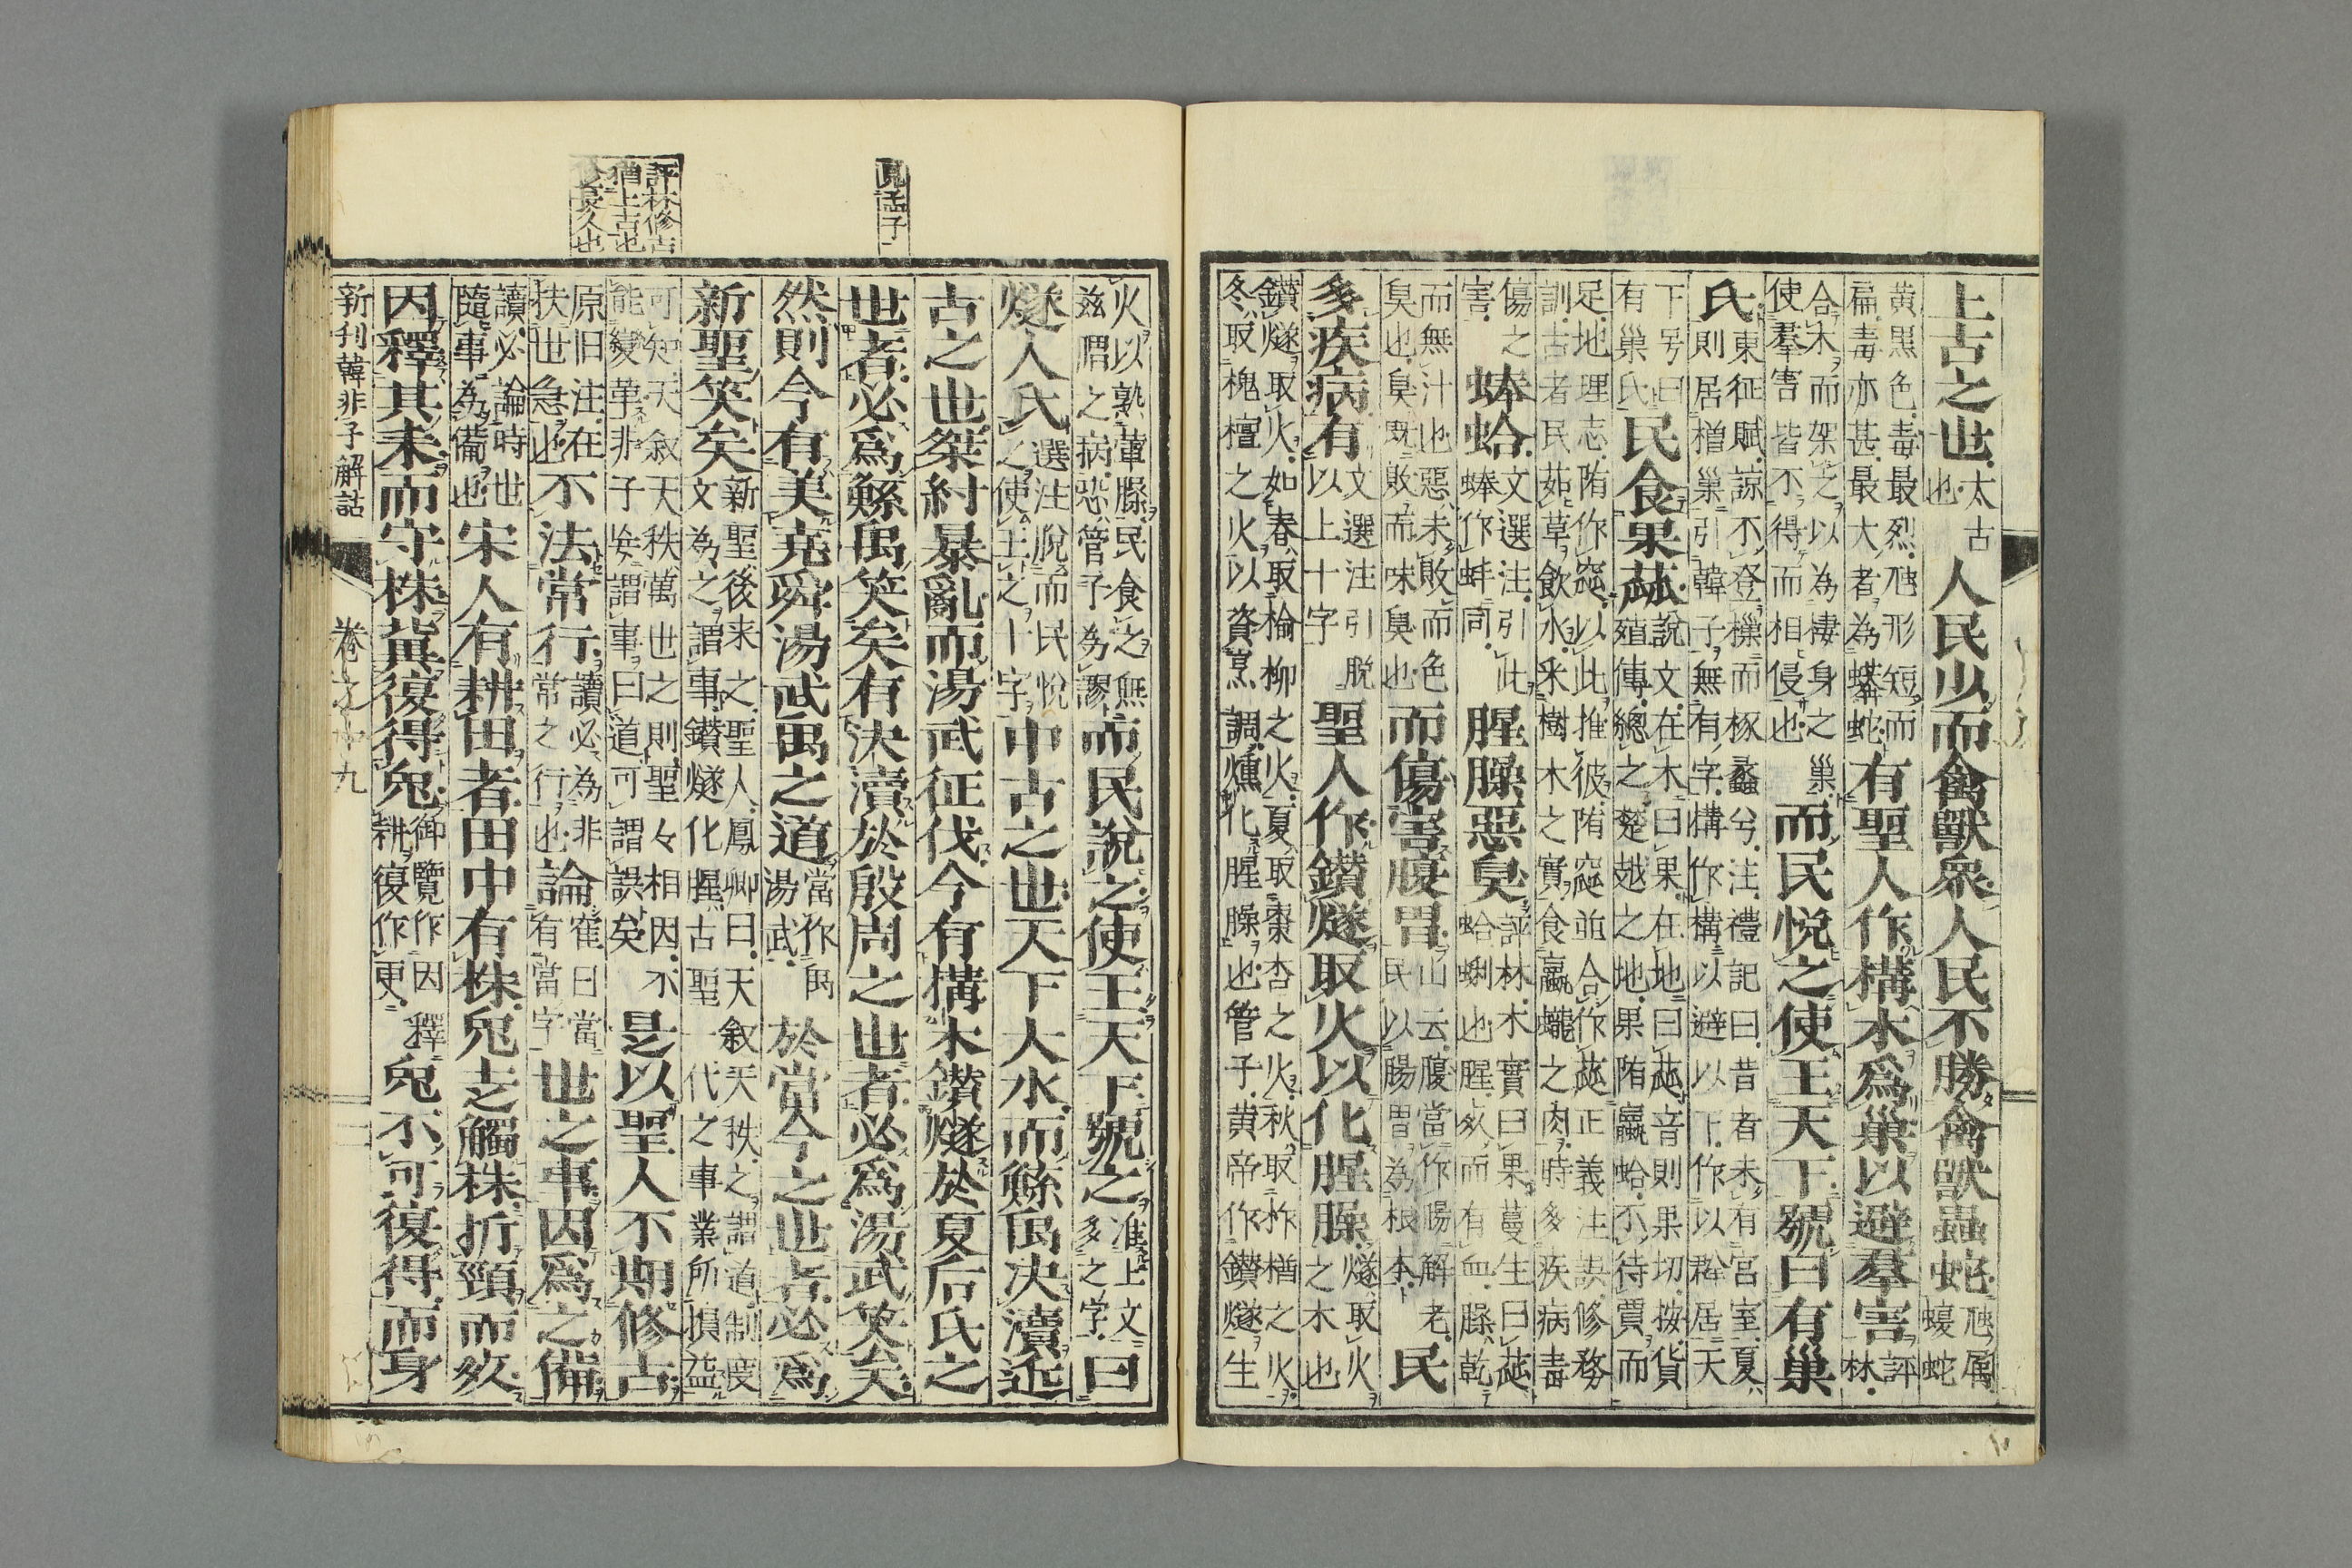 上古之世太古也人民少而禽獸衆人民不勝禽獸蟲蛇虺属蝮蛇
黄黒色毒最烈虺形短而扁毒亦甚最大者為蟒蛇有聖人作構木爲巢以避羣害評林
合木而架之以為棲身之巢使羣害皆不得而相侵也而民悅之使王天下號曰有巢
氏東征賦諒不登樔而椓蠡兮注禮記曰昔者未有宮室夏則居橧巢引韓子無有字構作搆以避以下作以群居天
下号曰有巢氏民食果蓏說文在木曰果在地曰蓏音則果切按貨殖傳總之楚越之地果陏蠃蛤不待賈而
足地理志陏作窳以此推彼陏窳並合作蓏正義注誤修務訓古者民茹草飲水釆樹木之實食蠃蠬之肉時多疾病毒
傷之害蜯蛤文選注引此蜯作蚌同腥臊惡臭評林木實曰果蔓生曰蓏蛤蜊也腥肰而有血臊乾
而無汁也惡未敗而色臭也臭既敗而味臭也而傷害腹胃山云腹當作腸解老民以腸胃為根本民
多疾病有文選注引脫以上十字聖人作鑚燧取火以化腥臊燧取火之木也
鑚燧取火如春取榆柳之火夏取棗杏之火秋取柞楢之火冬取槐檀之火以資烹調燻化腥臊也管子黄帝作鑚燧生
見孟子
火以熟葷臊民食之無茲䐜之病恐管子為謬而民說之使王天下號之准上文多之字曰
燧人氏選注脫而民悅之使王之十字中古之世天下大水而鯀禹決瀆近
古之世桀紂暴亂而湯武征伐今有構木鑚燧於夏后氏之
世者必爲鯀禹笑矣有決瀆於殷周之世者必爲湯武笑矣
然則今有美堯舜湯武禹之道當作禹湯武於當今之世者必爲
新聖笑矣新聖後来之聖人鳳卿曰天敘天秩之謂道制度文為之謂事鑚燧化腥古聖一代之事業所損益
可知天敘天秩萬世之則聖々相因不能變革非子妄謂事曰道可謂誤矣是以聖人不期修古
評林修古
猶上古也
修長久也
原旧注在秩世急也不法常行讀必為非常之行也論霍曰當有當字世之事因爲之備
讀必論時世隨事為備也宋人有耕田者田中有株兎走觸株折頸而死
因釋其耒而守株冀復得兎御覽作因釋耕復作更兎不可復得而身
新刊韓非子解詁　卷之十九